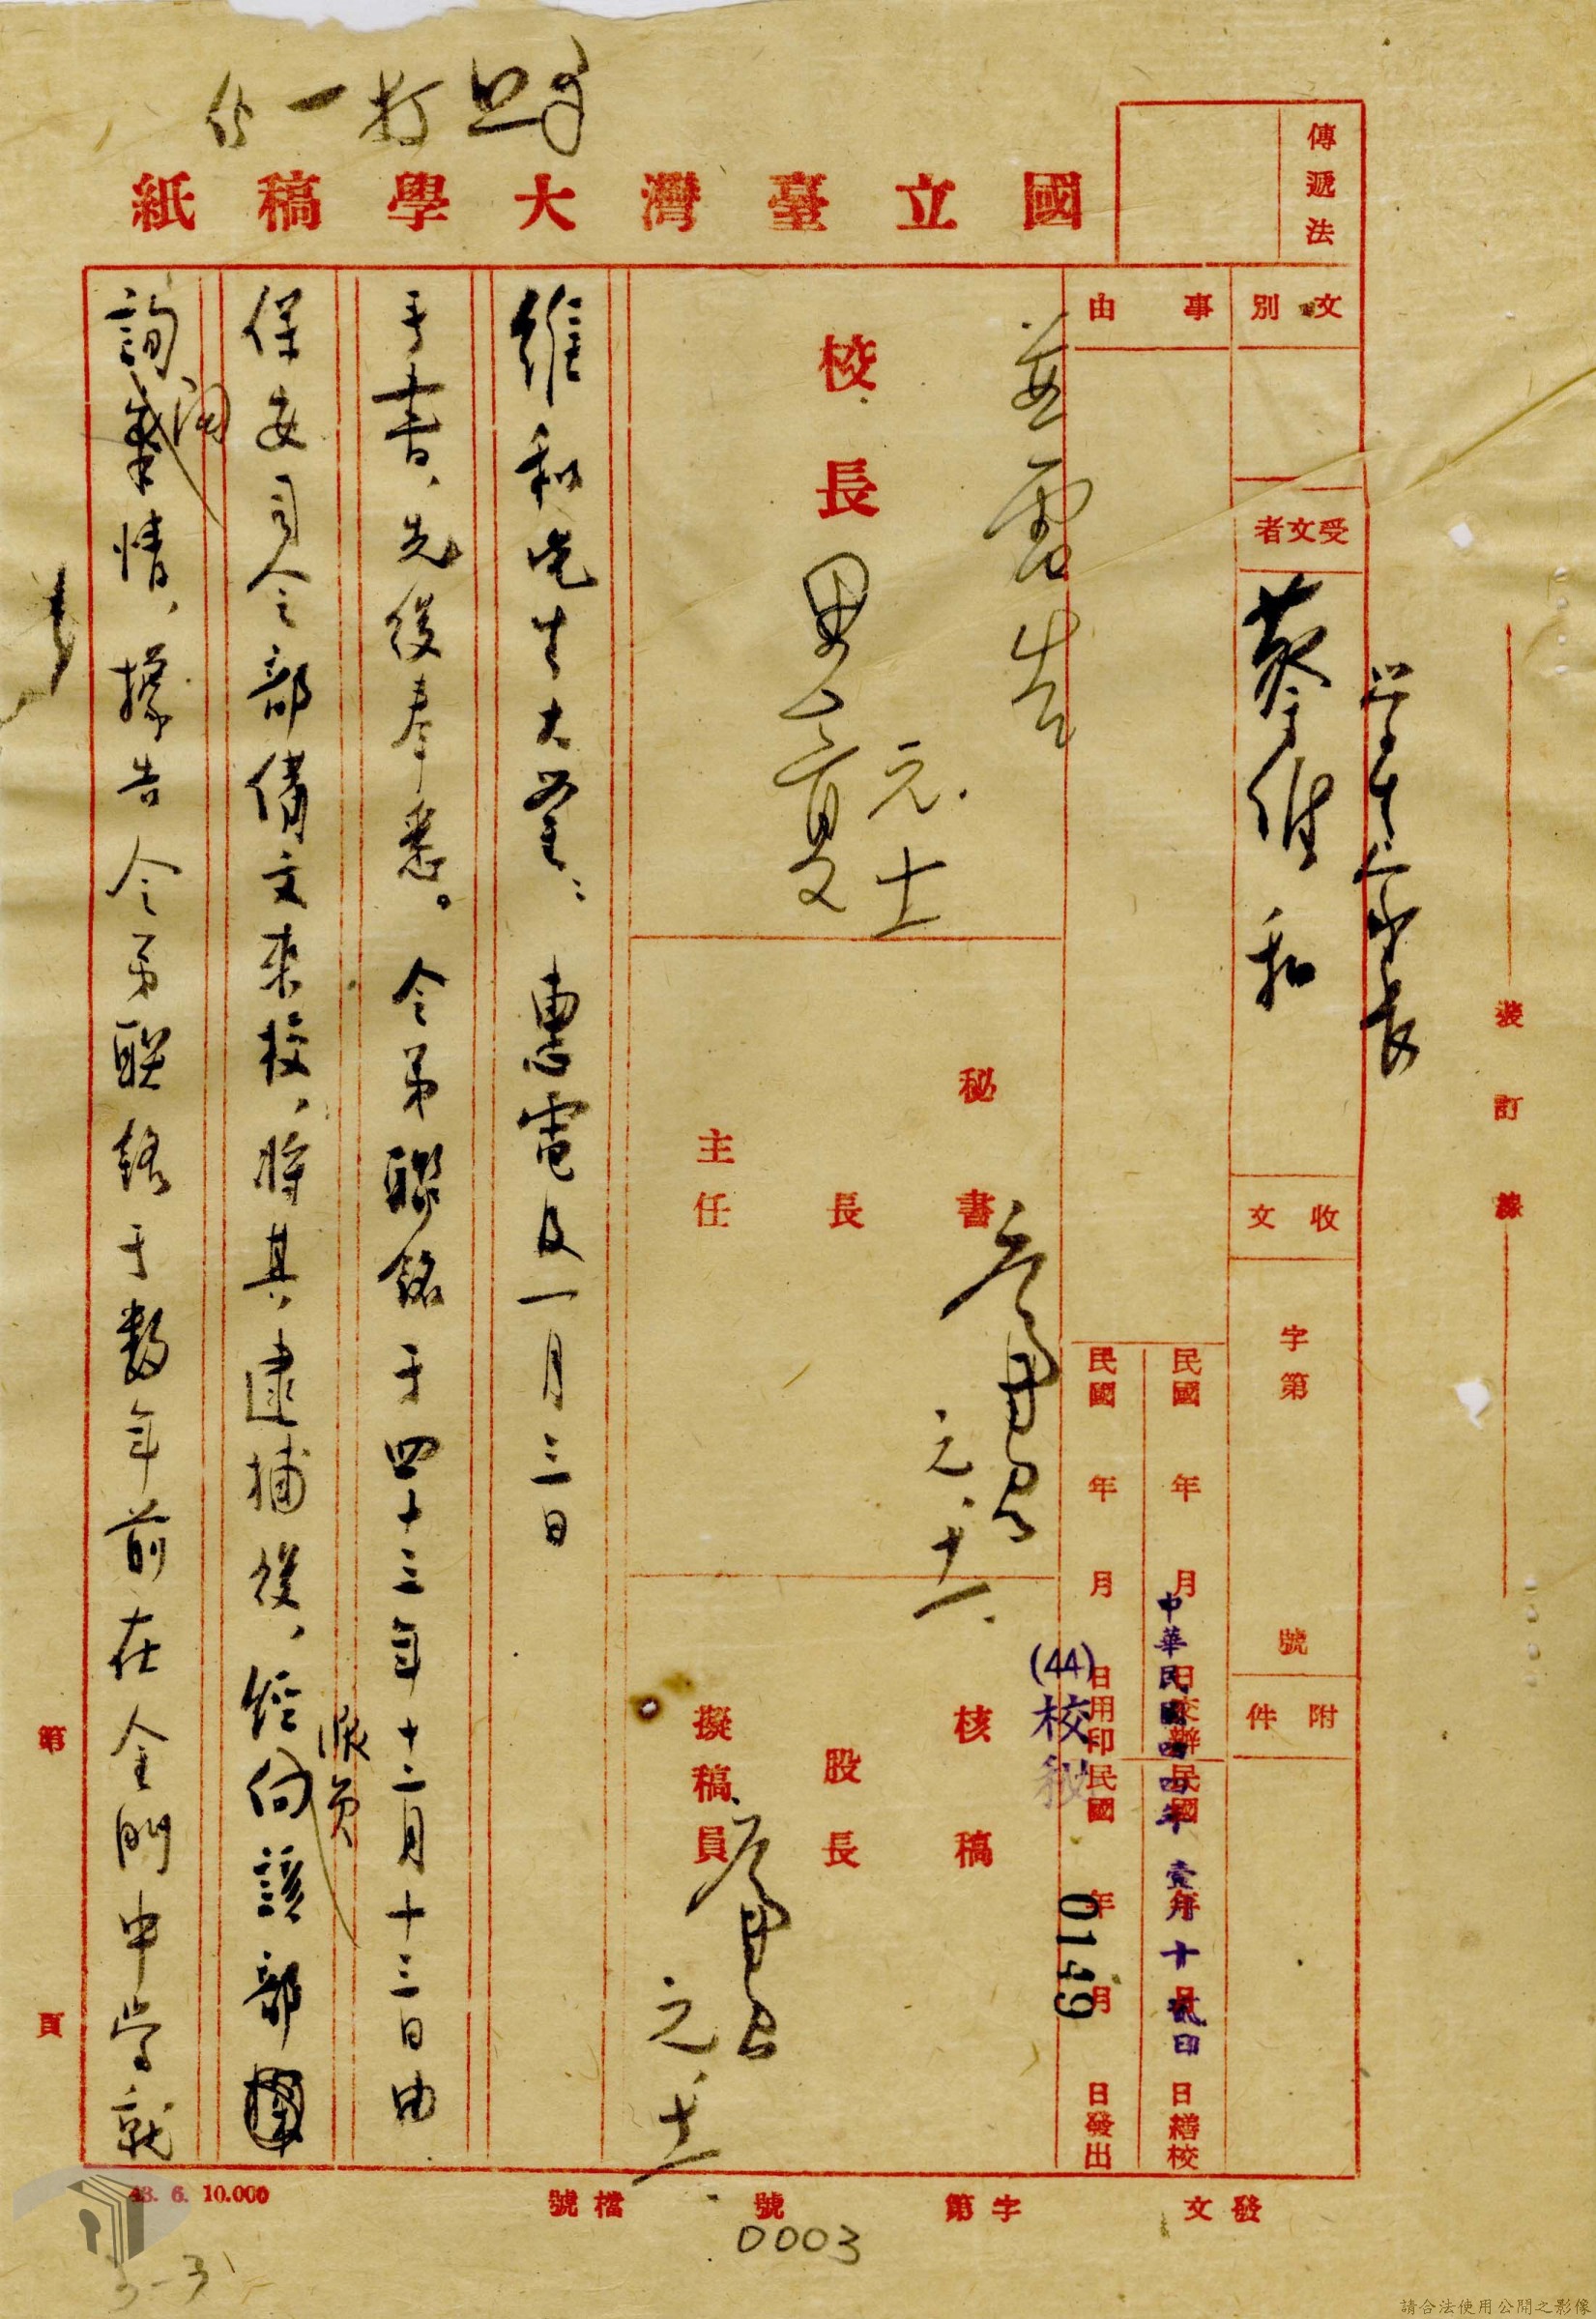 打一份
國立臺灣大學稿紙
傳遞法
文別
受文者
學生家長
蔡維和
收文
字第
號
附件
事由
民國 年 月 日交辦
民國 年 月 日繕校
民國 年 月 日用印
民國 年 月 日發出
中華民國四四年壹月十貳印
(44)校秘
0149
校長
元.十
秘書
長
主任
元.十一.
核稿
股長
擬稿員
元.十一.
維和先生大鑒:惠電及一月三日
手書,先後奉悉。令弟聯銘于四十三年十二月十三日由
保安司令部備文來校,將其逮捕後,經派員向該部
詢問案情,據告令弟聯銘于數年前在金門中學就
裝訂線
第 頁
43. 6. 10.000
發文
字第
號
檔號
0003
3-3
請合法使用公開之影像